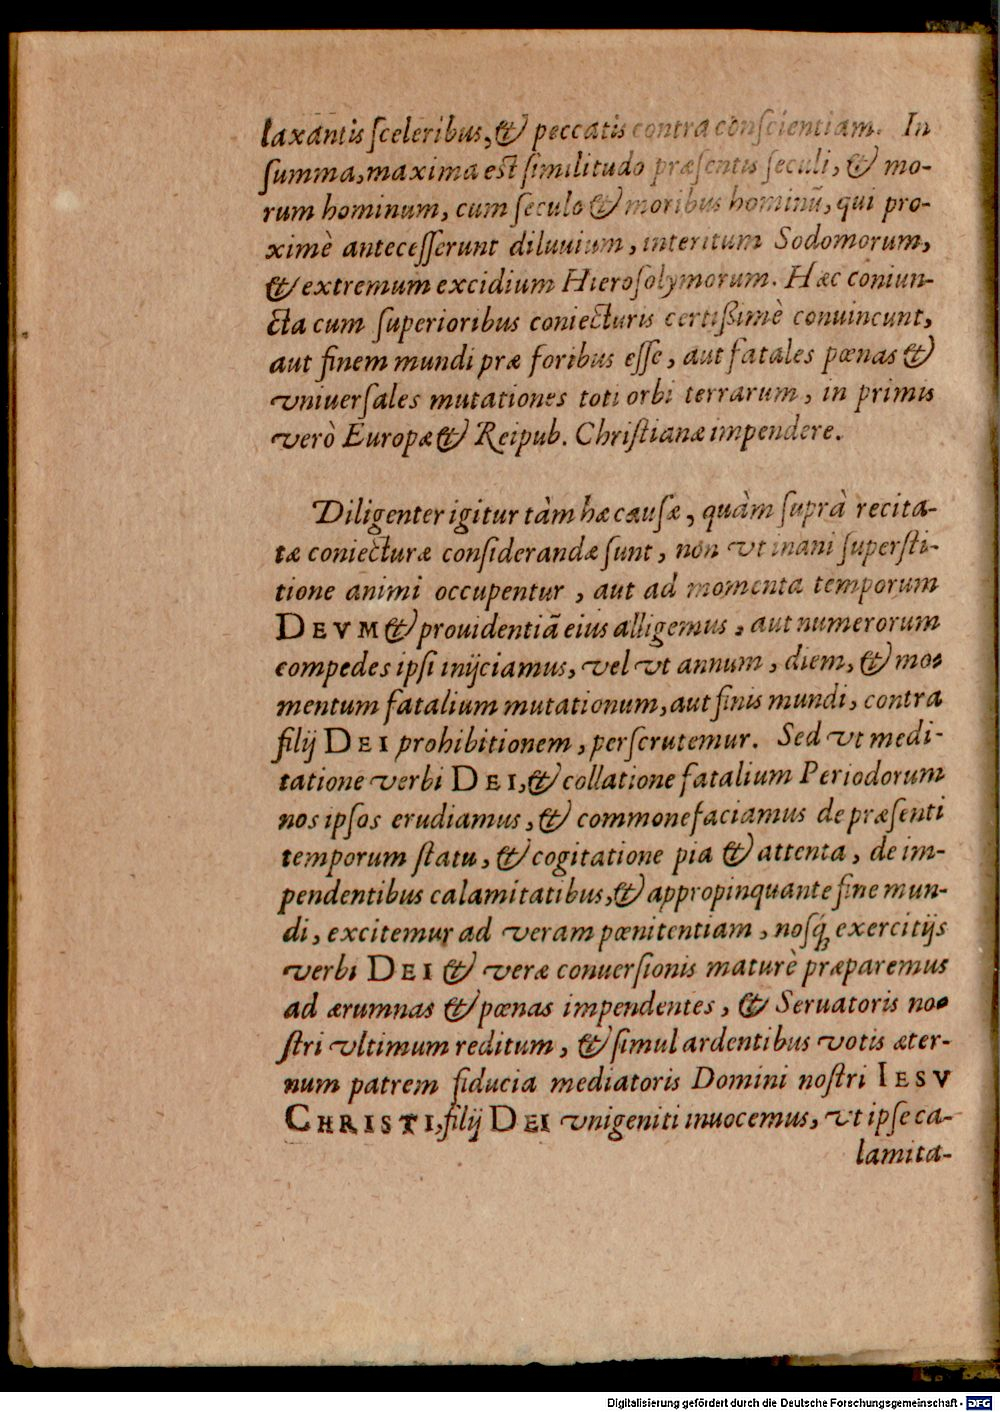 laxantis ſceleribus, & peccatis contra conſcientiam. In
ſumma, maxima eſt ſimilitudo præſentis ſeculi, & mo-
rum hominum, cum ſeculo & moribus hominū, qui pro-
ximè anteceſſerunt diluuium, interitum Sodomorum,
& extremum excidium Hieroſolymorum. Hæc coniun-
cta cum ſuperioribus coniecturis certißimè conuincunt,
aut finem mundi præ foribus eſſe, aut fatales pœnas &
vniuerſales mutationes toti orbi terrarum, in primis
verò Europæ & Reipub. Chriſtianæ impendere.
Diligenter igitur tàm hæ cauſæ, quàm ſuprà recita-
tæ coniecturæ conſiderandæ ſunt, non vt inani ſuperſti-
tione animi occupentur, aut ad momenta temporum
DEVM & prouidentiā eius alligemus, aut numerorum
compedes ipſi inijciamus, vel vt annum, diem, & mo-
mentum fatalium mutationum, aut finis mundi, contra
filij DEI prohibitionem, perſcrutemur. Sed vt medi-
tatione verbi DEI, & collatione fatalium Periodorum
nos ipſos erudiamus, & commonefaciamus de præſenti
temporum ſtatu, & cogitatione pia & attenta, de im-
pendentibus calamitatibus, & appropinquante fine mun-
di, excitemur ad veram pœnitentiam, noſq́; exercitijs
verbi DEI & veræ conuerſionis maturè præparemus
ad ærumnas & pœnas impendentes, & Seruatoris no-
ſtri vltimum reditum, & ſimul ardentibus votis æter-
num patrem fiducia mediatoris Domini noſtri IESV
CHRISTI, filij DEI vnigeniti inuocemus, vt ipſe ca-
lamita-
Digitalisierung gefördert durch die Deutsche Forschungsgemeinschaft - DFG